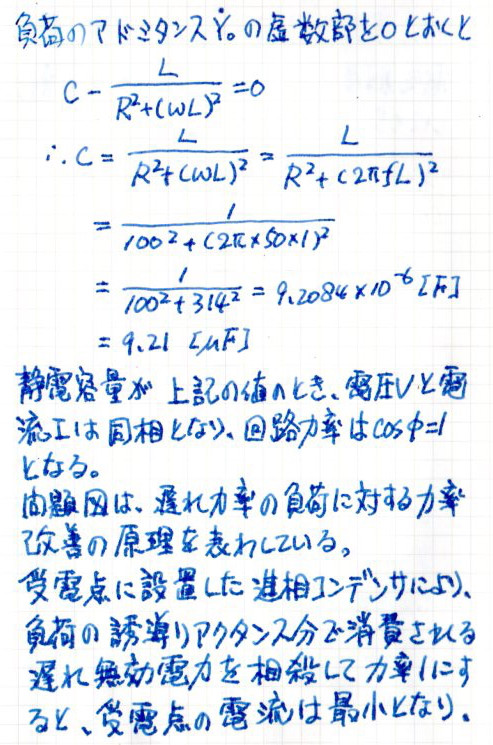 負荷のアドミタンスẎ₀の虚数部を0とおくと
C - L/(R²+(ωL)²) = 0
∴ C = L/(R²+(ωL)²) = L/(R²+(2πfL)²)
= 1/(100²+(2π×50×1)²)
= 1/(100²+314²) = 9.2084×10⁻⁶ [F]
= 9.21 [μF]
静電容量が上記の値のとき、電圧Vと電
流Iは同相となり、回路力率はcosφ=1
となる。
問題図は、遅れ力率の負荷に対する力率
改善の原理を表わしている。
受電点に設置した進相コンデンサにより、
負荷の誘導リアクタンス分で消費される
遅れ無効電力を相殺して力率1にす
ると、受電点の電流は最小となり、